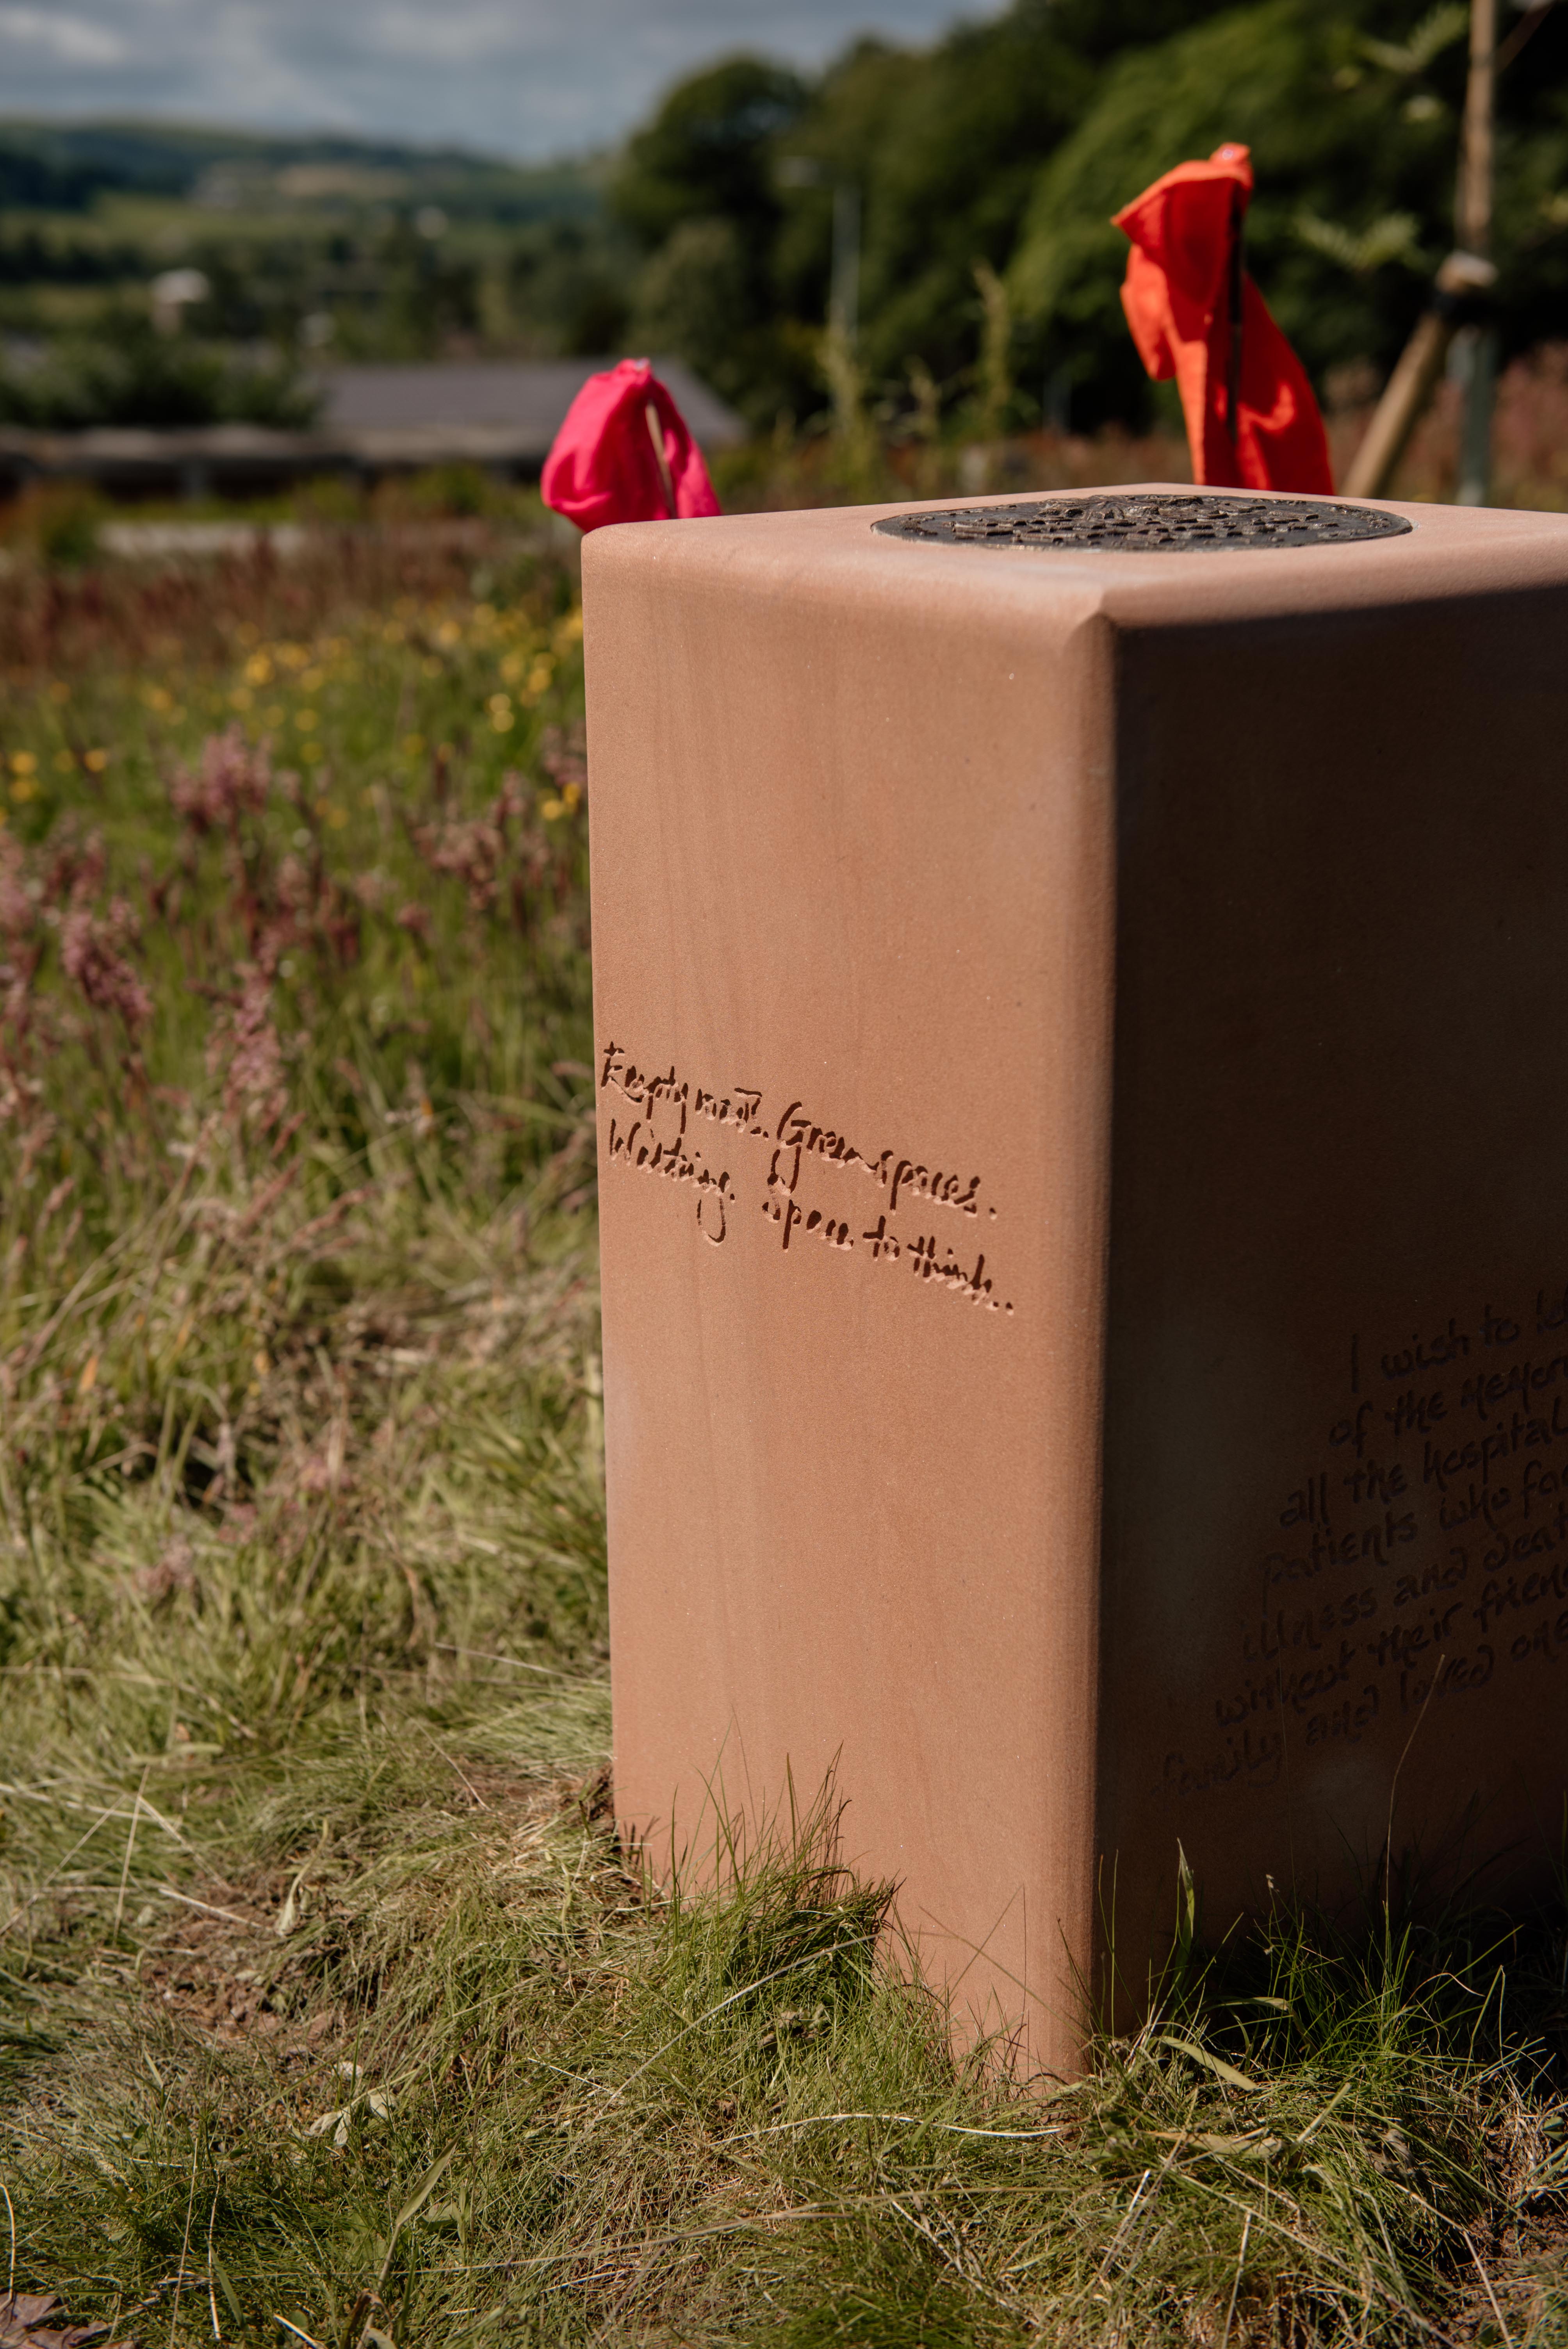 Green spaces.
Space to think..
I wish to
of the memor
all the hospital
patients who fa
illness and deat
without their frien
family and loved one